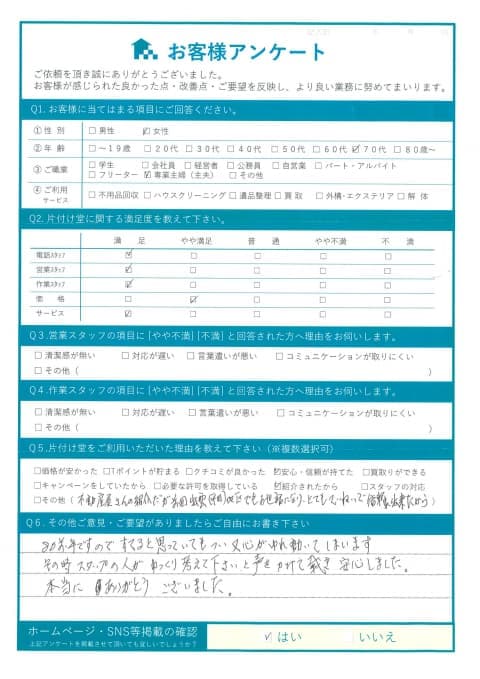 お客様アンケート
ご依頼を頂き誠にありがとうございました。
お客様が感じられた良かった点・改善点・ご要望を反映し、より良い業務に努めてまいります。
Q1. お客様に当てはまる項目にご回答ください。
①性 別 □男性 ☑女性
②年 齢 □～19歳 □20代 □30代 □40代 □50代 □60代 ☑70代 □80歳～
③ご職業 □学生 □会社員 □経営者 □公務員 □自営業 □パート・アルバイト
□フリーター ☑専業主婦（主夫） □その他
④ご利用サービス □不用品回収 □ハウスクリーニング □遺品整理 □買 取 □外構・エクステリア □解 体
Q2. 片付け堂に関する満足度を教えて下さい。
満 足 やや満足 普 通 やや不満 不 満
電話ｽﾀｯﾌ ☑ □ □ □ □
営業ｽﾀｯﾌ ☑ □ □ □ □
作業ｽﾀｯﾌ ☑ □ □ □ □
価 格 □ ☑ □ □ □
サービス ☑ □ □ □ □
Q3.営業スタッフの項目に[やや不満][不満]と回答された方へ理由をお伺いします。
□清潔感が無い □対応が遅い □言葉遣いが悪い □コミュニケーションが取りにくい
□その他（ ）
Q4.作業スタッフの項目に[やや不満][不満]と回答された方へ理由をお伺いします。
□清潔感が無い □対応が遅い □言葉遣いが悪い □コミュニケーションが取りにくい
□その他（ ）
Q5.片付け堂をご利用いただいた理由を教えて下さい（※複数選択可）
□価格が安かった □Tポイントが貯まる □クチコミが良かった ☑安心・信頼が持てた □買取りができる
□キャンペーンをしていたから □必要な許可を取得している ☑紹介されたから □スタッフの対応
□その他（不動産屋さんの紹介だが お世話になり、とてもていねいで信頼出来たから）
Q6. その他ご意見・ご要望がありましたらご自由にお書き下さい
ですので すてると思っていてもつい 心がゆれ動いてしまいます
その時スタッフの人が ゆっくり考えて下さいと声をかけて頂き 安心しました。
本当に ありがとう ございました。
ホームページ・SNS等掲載の確認
上記アンケートを掲載させて頂いても宜しいでしょうか？
☑はい □いいえ